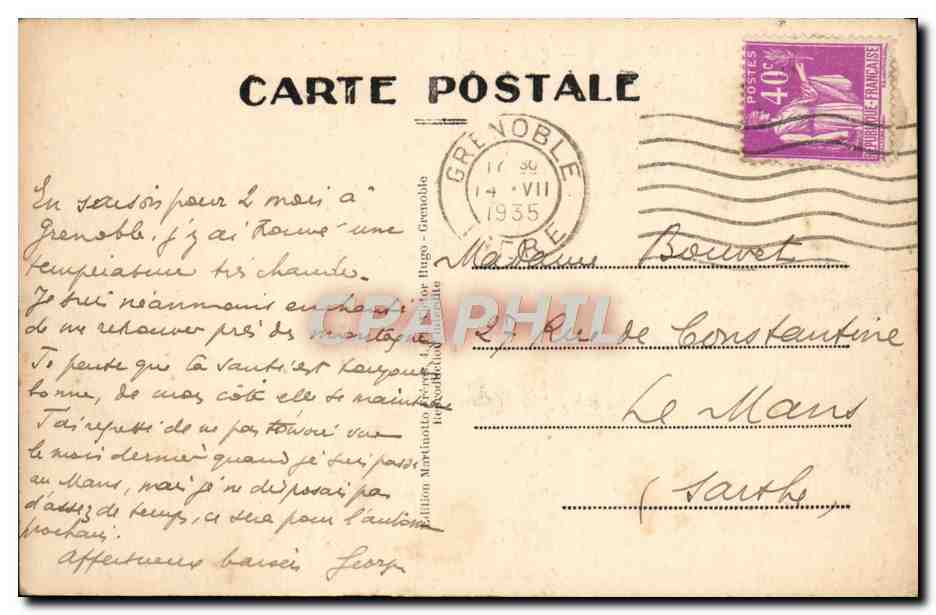 CARTE POSTALE
POSTES
40c
REPUBLIQUE-FRANÇAISE
GRENOBLE
17 30
14 VII
1935
ISERE
En saison pour 2 mois à
Grenoble, j'y ai trouvé une
température très chaude.
Je suis néanmoins enchanté
de me retrouver près des montagnes
Je pense que ta santé est toujours
bonne, de mon côté elle se maintient
J'ai regretté de ne pas t'avoir vue
le mois dernier quand je suis passé
au Mans, mais je ne disposais pas
d'assez de temps, ce sera pour l'automne
prochain.
Affectueux baisers Georges
Edition Martinotto Frères, Victor Hugo - Grenoble
Reproduction Interdite
CPAPHIL
Madame Bouvet
27 Rue de Constantine
Le Mans
(Sarthe)